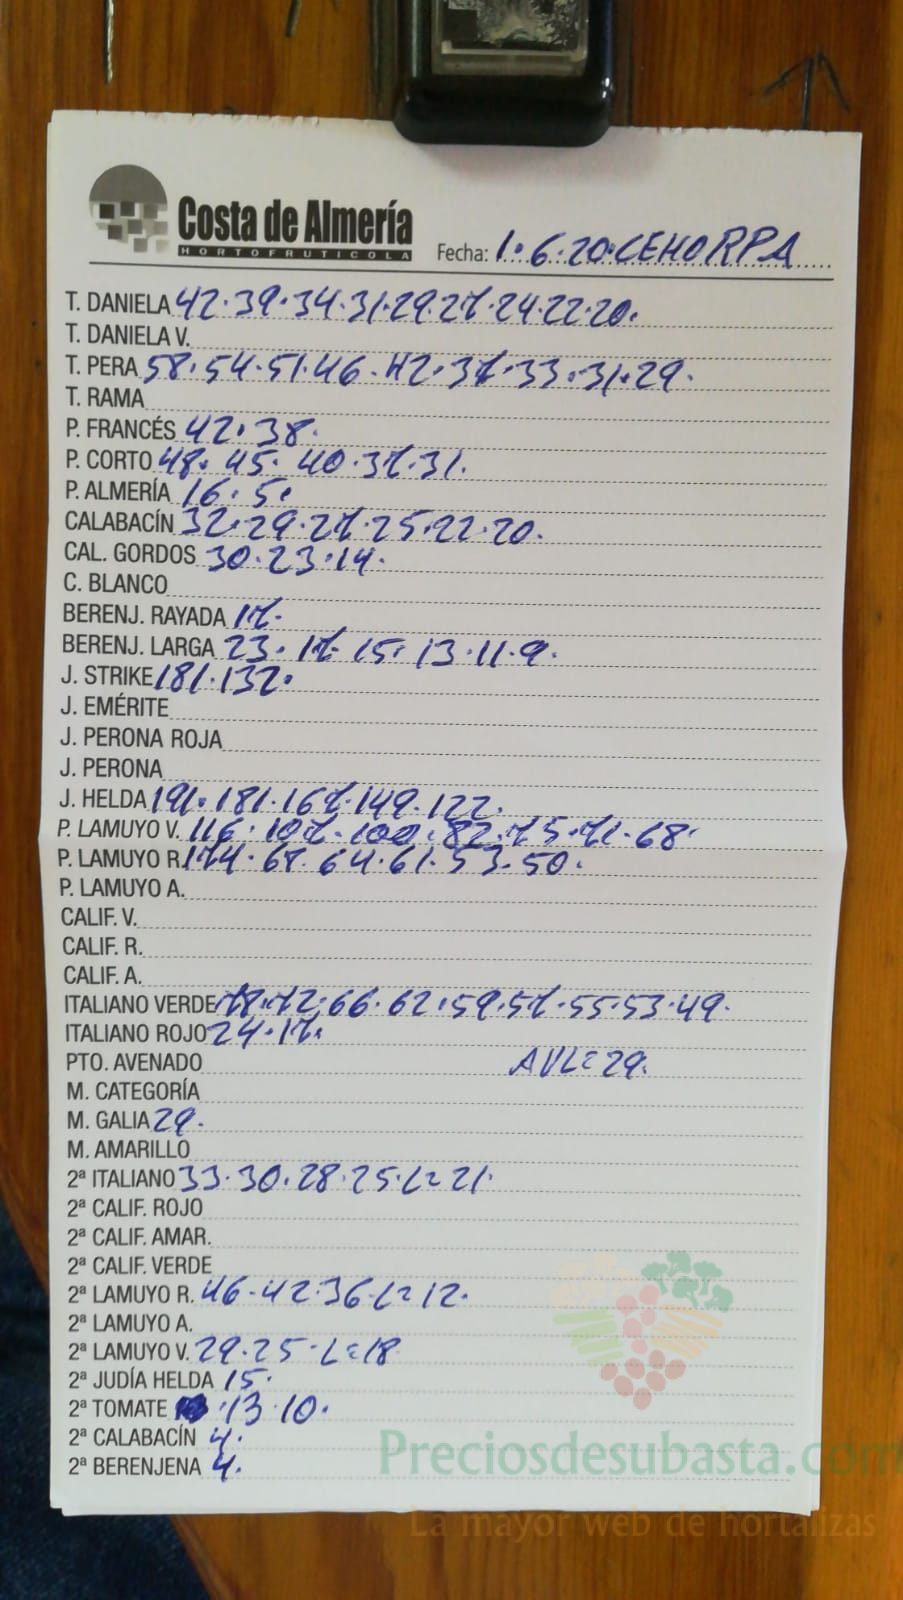 Costa de Almería
HORTOFRUTICOLA
Fecha: 1.6.20.CEHORPA
T. DANIELA 42.39.34.31.29.27.24.22.20.
T. DANIELA V.
T. PERA 58.54.51.46.42.37.33.31.29.
T. RAMA
P. FRANCÉS 42.38.
P. CORTO 48.45.40.37.31.
P. ALMERÍA 16.5.
CALABACÍN 32.29.27.25.22.20.
CAL. GORDOS 30.23.14.
C. BLANCO
BERENJ. RAYADA 17.
BERENJ. LARGA 23.17.15.13.11.9.
J. STRIKE 181.132.
J. EMÉRITE
J. PERONA ROJA
J. PERONA
J. HELDA 191.181.167.149.122.
P. LAMUYO V. 116.107.100.82.75.71.68.
P. LAMUYO R. 64.61.53.50.
P. LAMUYO A.
CALIF. V.
CALIF. R.
CALIF. A.
ITALIANO VERDE 78.72.66.62.59.57.55.53.49.
ITALIANO ROJO 24.17.
PTO. AVENADO AVL=29.
M. CATEGORÍA
M. GALIA 29.
M. AMARILLO
2ª ITALIANO 33.30.28.25.L=21.
2ª CALIF. ROJO
2ª CALIF. AMAR.
2ª CALIF. VERDE
2ª LAMUYO R. 46.42.36.L=12.
2ª LAMUYO A.
2ª LAMUYO V. 29.25.L=18
2ª JUDÍA HELDA 15.
2ª TOMATE .13.10.
2ª CALABACÍN 4.
2ª BERENJENA 4.
Preciosdesubasta.com
La mayor web de hortalizas